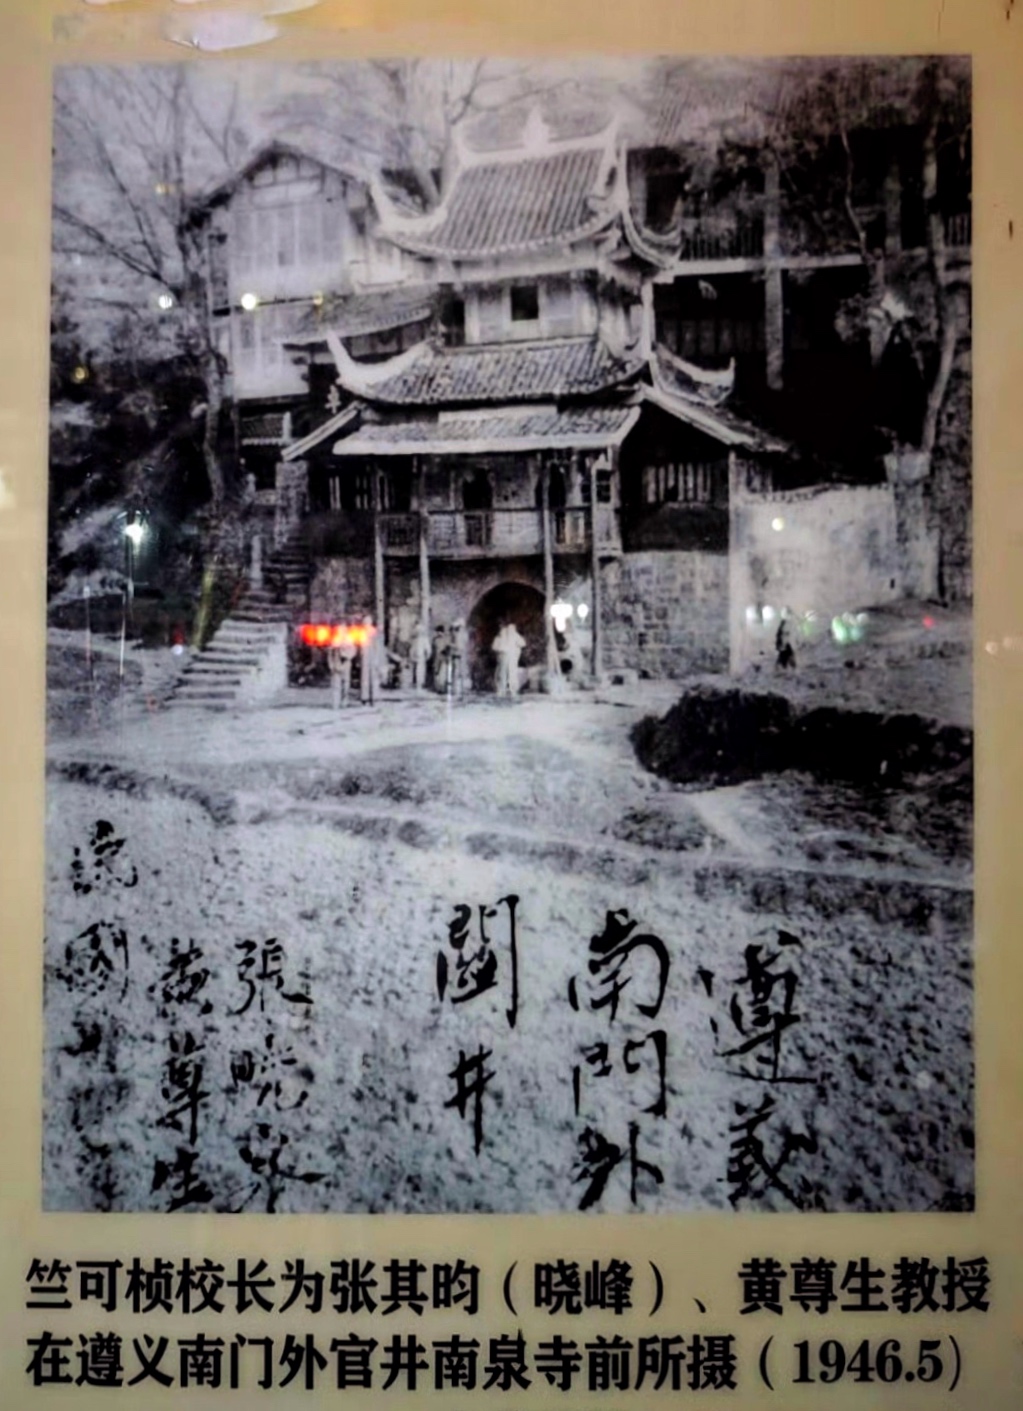 遵義
南門外
井
張曉
黄尊生
竺可桢校长为张其昀（晓峰）、黄尊生教授
在遵义南门外官井南泉寺前所摄（1946.5）